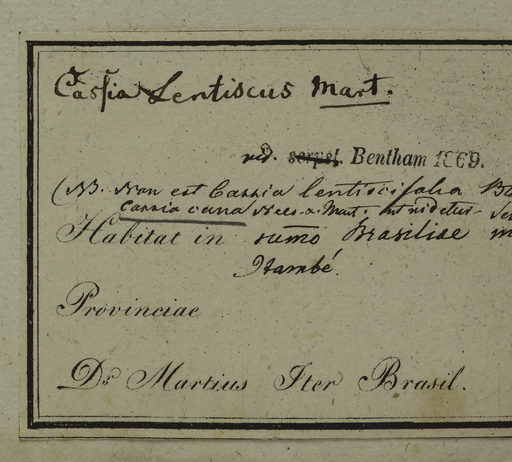 Cassia Lentiscus Mart.
vid. script. Bentham 1869.
(NB. Non est Cassia lentiscifolia
Cassia cana Nees a. Mart. ut videtur
Habitat in sum̅o Brasiliae m
Itambé.
Provinciae
Dr. Martius Iter Brasil.